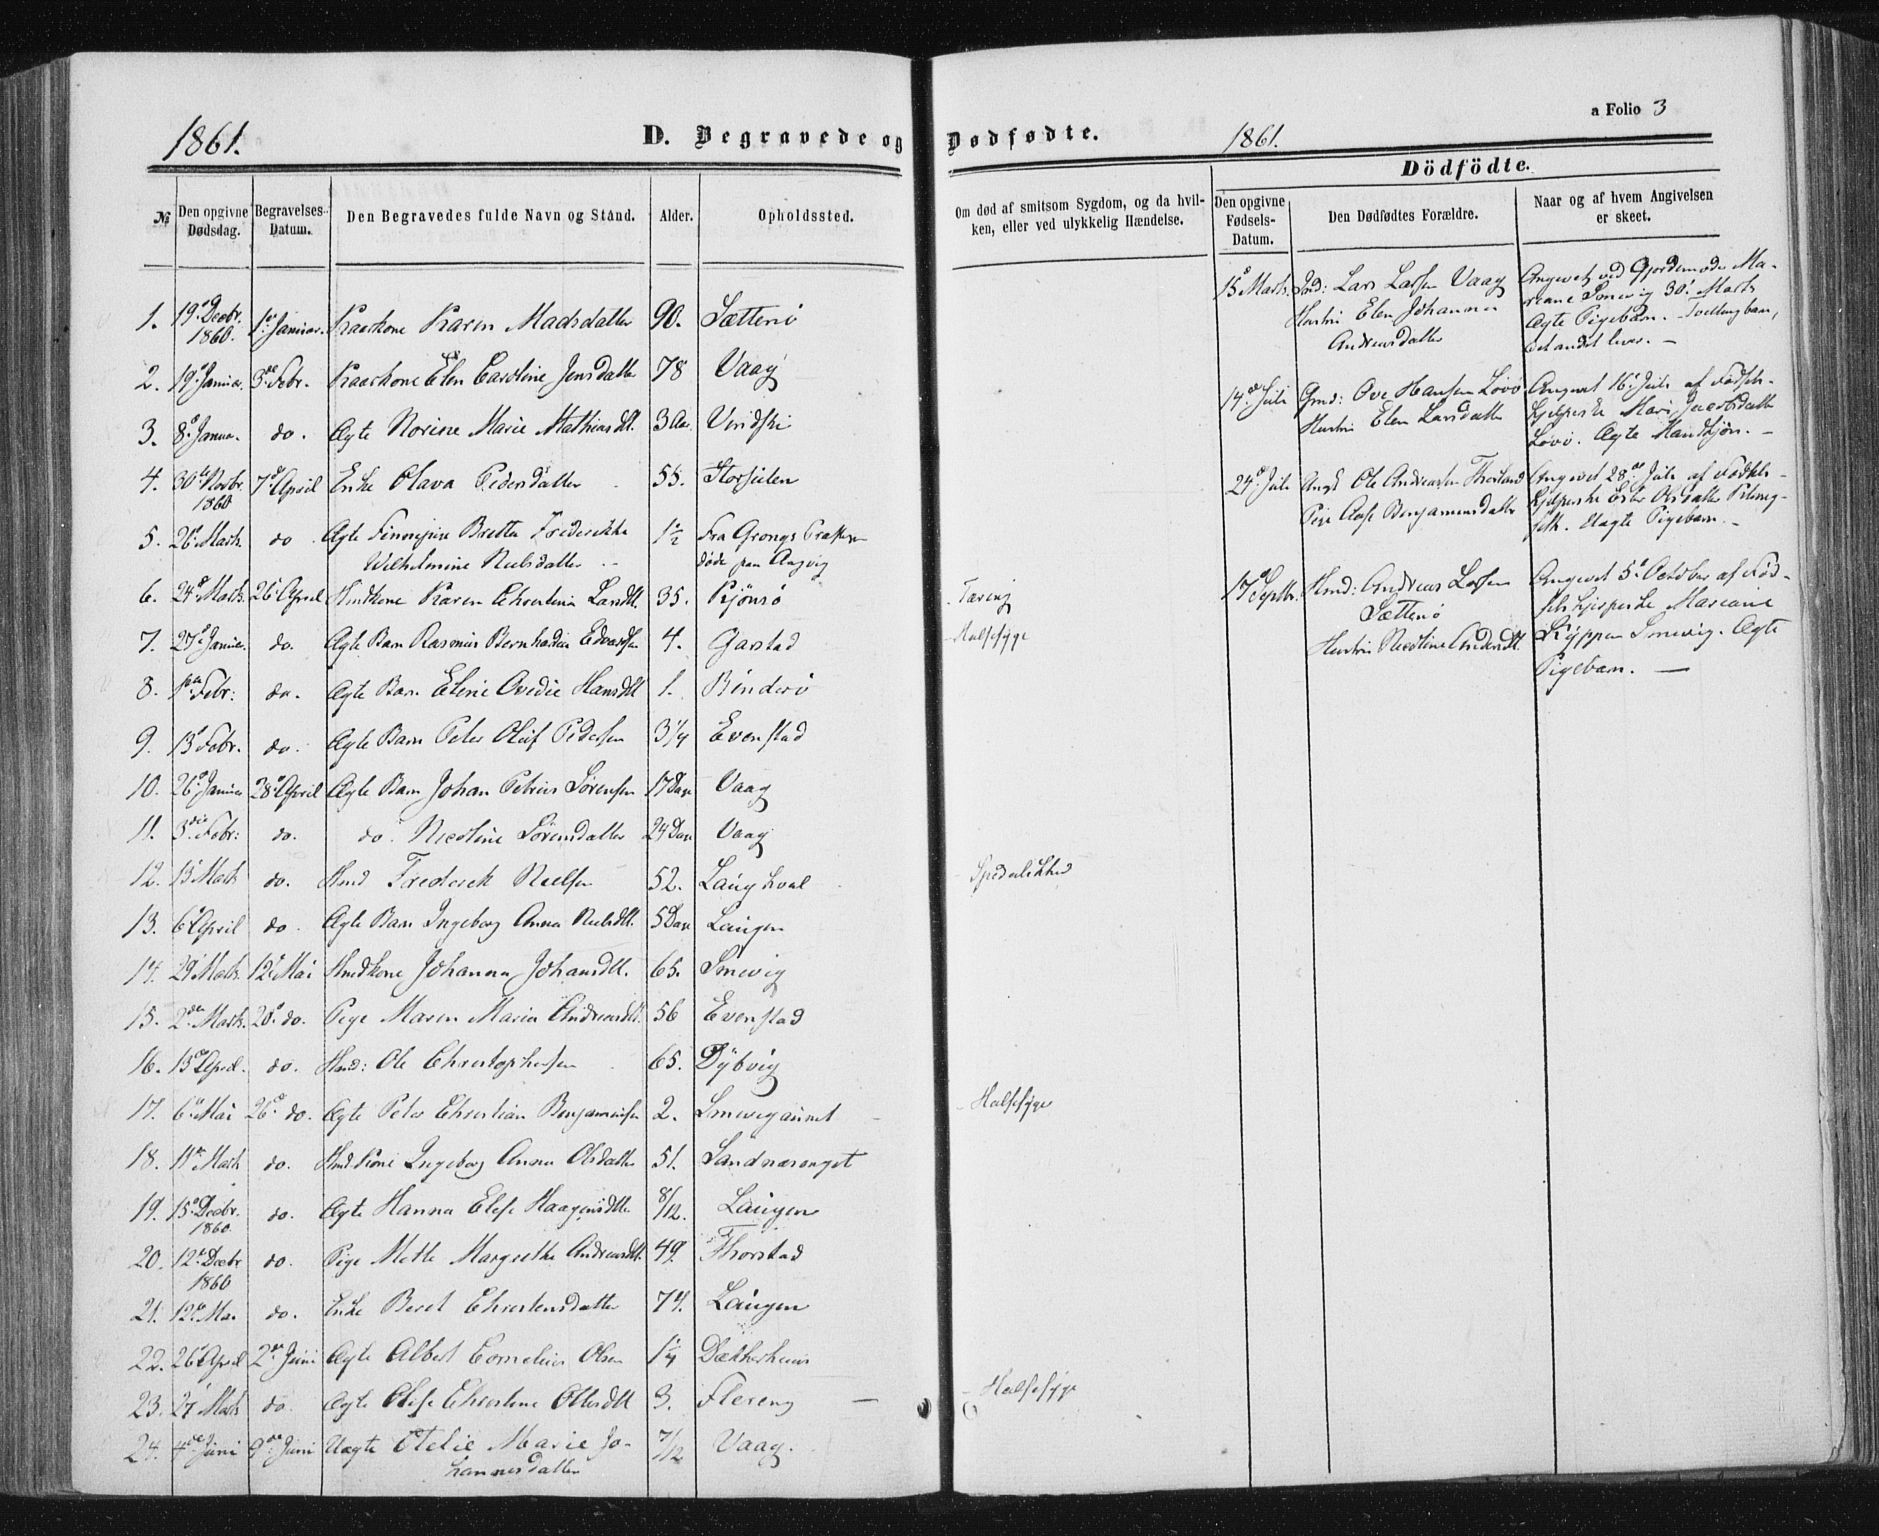 1861.
D. Begravede og Dødfødte.
1861.
a Folio 3
№
Den opgivne Dødsdag.
Begravelses-Datum.
Den Begravedes fulde Navn og Stand.
Alder.
Opholdssted.
Om død af smitsom Sygdom, og da hvil-
ken, eller ved ulykkelig Hændelse.
Dödfödte.
Den opgivne Fødsels-Datum.
Den Dødfødtes Forældre.
Naar og af hvem Angivelsen er skeet.
1. 19de Decbr. 1860. 1ste Januar. Kaarkone Karen Madsdatter 90. Sætterø
2. 19de Januar 3die Febr. Kaarkone Elen Caroline Jensdatter 78 Vaag
3. 8de Janua. do. Ægte Norine Marie Mathiasdtt. 3 Aar
4. 30te Novbr. 1860 7de April Enke Olava Pedersdatter 55.
5. 26de Marts do Ægte Bretta Frederikke
Wilhelmine Nielsdatter 1½ Fra Grongs
døde paa
6. 24de Marts. 26de April Hmdkone Karen Christina Larsdtt. 35.
Tæring
7. 27de Januar. do. Ægte Barn Rasmus Bernhardin Edvardsen 4. Garstad
Halsesyge
8. 1ste Febr: do. Ægte Barn Eline Ovedie Hansdtt 1. Binderø
9. 13de Febr. do. Ægte Barn Peter Oluf Pedersen 3/4 Evenstad
10. 26de Januar 28de April Ægte Barn Johan Petrus Sørensen 17 Dage Vaag
11. 3die Febr: do. do. Nicoline Sørensdatter 24 Dage Vaag
12. 13de Marts do. Hmd Frederik Nielsen 52. Laughval
Spedalskhed
13. 6te April do. Ægte Barn Ingeborg Anna Nielsdtt. 5 Dage Laugen
14. 29de Marts. 12te Mai Hmdkone Johanna Johansdtt. 65. Smevig
15. 2den Marts. 20de do. Pige Maren Maria Andreasdtt. 56 Evenstad
16. 15de April. do. Hmd: Ole Christophersen 65. Dybvig
17. 6te Mai 26de do. Ægte Peter Christian Benjaminsen 2. Smevigaunet
Halsesyge
18. 11te Marts do. Hmdkone Ingeborg Anna Olsdatter 51. Sandnæsenget
19. 15de Decbr. 1860 do. Ægte Hanna Elise Haagensdtt. 8/12. Laugen
20. 12te Decbr 1860 do. Pige Mette Margrethe Andreasdtt. 49. Thorstad
21. 12te Mai do. Enke Beret Christensdatter 74. Laugen
22. 26de April 2den Juni Ægte Albert Cornelius Olsen 1¼
23. 27 Marts do. Ægte Christine Ottersdtt 3. Flereng
Halsesyge
24. 4de Juni 9de Juni Uægte Otelie Marie Jo-
hannesdatter 7/12 Vaag.
15de Marts. Ind: Lars Larsen Vaag
Hustru Elen Johanna
Andreasdatter
Angivet ved Gjordemoder Ma-
riane Smevig 30te Marts
Ægte Pigebarn. Tvillingbarn,
det andet lever. —
14de Juli Gmd: Ove Hansen Løvø
Hustru Elen Larsdatter
Angivet 16de Juli af Fødsels-
hjelperske Mari Jacobsdatter
Løvø. Ægte Mandkjøn. —
24de Juli Ungk Ole Andreassen Thorstad
Pige Aase Benjaminsdatter
Angivet 28de Juli af Fødsels-
hjelperske Ester Olsdatter
Uægte Pigebarn. —
17de Septbr. Hmd: Andreas Larsen
Sætterø
Hustru Nicoline Andersdtt.
Angivet 5te October af Fød-
selshjelperske Mariane
Smevig. Ægte
Pigebarn. —